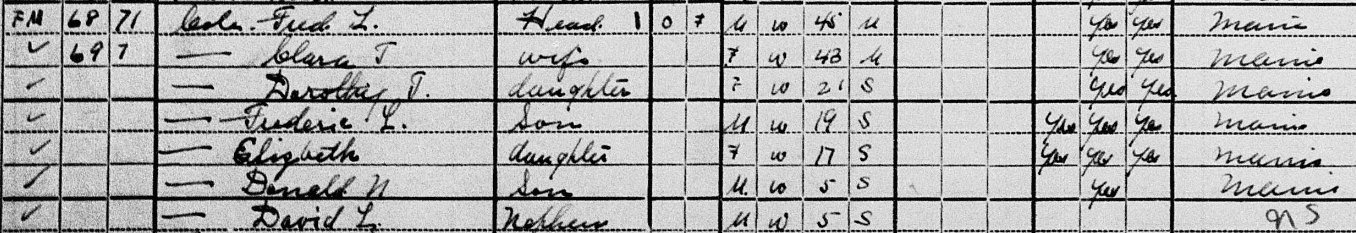 FM 68 71 Cole Fred L. Head 1 0 7 M W 45 M Yes Yes Maine
✓ 69 7 — Clara T wife F W 43 M Yes Yes Maine
✓ — Dorothy T. daughter F W 21 S Yes Yes Maine
✓ — Frederic L. Son M W 19 S Yes Yes Yes Maine
✓ — Elizbeth daughter F W 17 S Yes Yes Yes Maine
✓ — Donald N Son M W 5 S Yes Maine
✓ — David L. Nephew M W 5 S